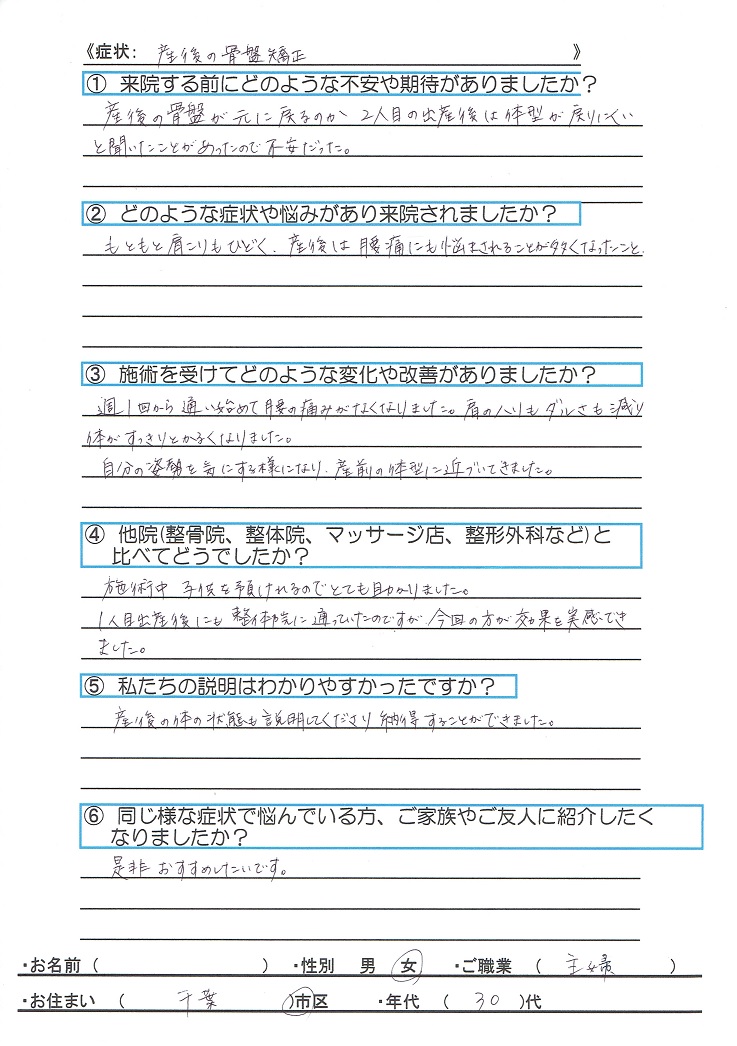 《症状: 産後の骨盤矯正 》
① 来院する前にどのような不安や期待がありましたか？
産後の骨盤が元に戻るのか 2人目の出産後は体型が戻りにくい
と聞いたことがあったので不安だった。
② どのような症状や悩みがあり来院されましたか？
もともと肩こりもひどく、産後は腰痛にも悩まされることが多くなったこと、
③ 施術を受けてどのような変化や改善がありましたか？
週1回から通い始めて腰の痛みがなくなりました。肩のハリもダルさも減り
体がすっきりとかるくなりました。
自分の姿勢を気にする様になり、産前の体型に近づいてきました。
④ 他院(整骨院、整体院、マッサージ店、整形外科など)と
比べてどうでしたか？
施術中 子供を預けれるのでとても助かりました。
1人目出産後にも整体院に通っていたのですが、今回の方が効果を実感でき
ました。
⑤ 私たちの説明はわかりやすかったですか？
産後の体の状態も説明してくださり納得することができました。
⑥ 同じ様な症状で悩んでいる方、ご家族やご友人に紹介したく
なりましたか？
是非おすすめしたいです。
・お名前 ( ) ・性別 男 女 ・ご職業 ( 主婦 )
・お住まい ( 千葉 )市区 ・年代 ( 30 )代